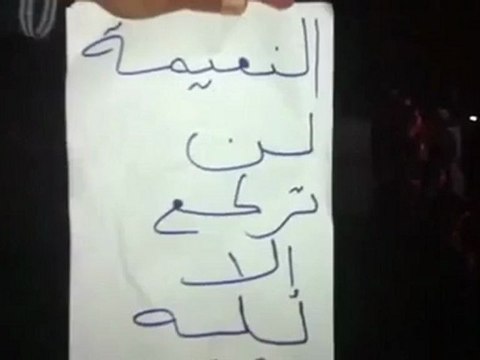 النعيمة
لن
تركع
إلا
لله